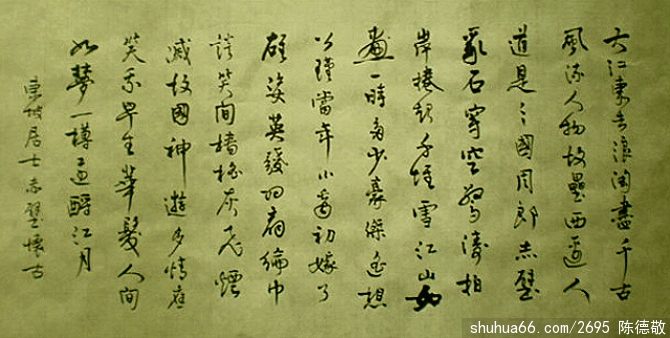 大江東去浪淘盡千古
風流人物故壘西邊人
道是三國周郎赤壁
亂石穿空驚濤拍
岸捲起千堆雪江山如
畫一時多少豪傑遙想
公瑾當年小喬初嫁了
雄姿英發羽扇綸巾
談笑間檣櫓灰飛煙
滅故國神遊多情應
笑我早生華髮人間
如夢一樽還酹江月
東坡居士赤壁懷古
shuhua66.com/2695 陈德敬